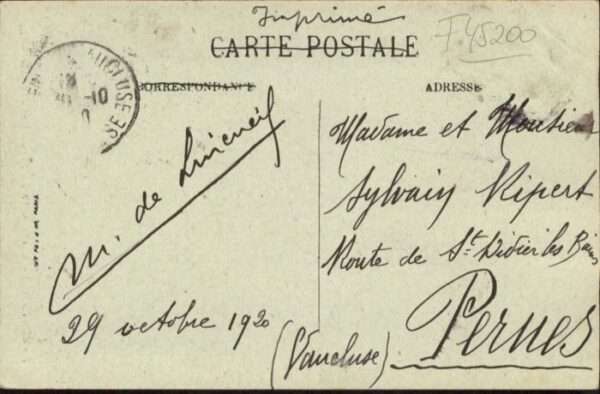 Imprimé
CARTE POSTALE
F 45200
CORRESPONDANCE
ADRESSE
VAUCLUSE
10
M. de
29 octobre 1920
Madame et Monsieur
Sylvain Ripert
Route de St Didier les Bains
Pernes
(Vaucluse)